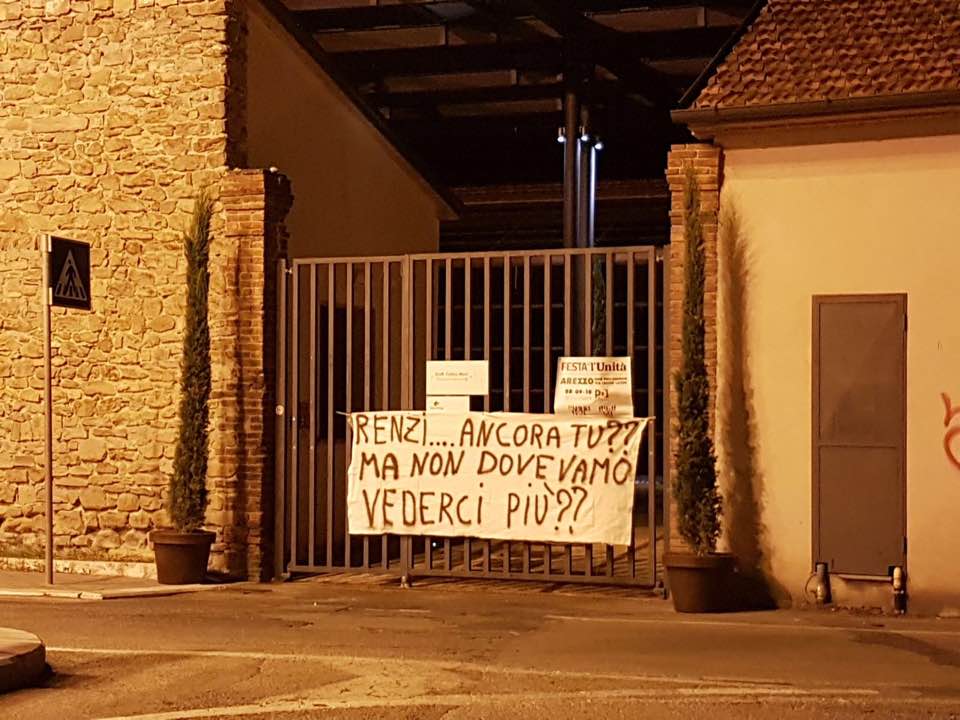 FESTA l'Unità
AREZZO
RENZI....ANCORA TU??
MA NON DOVEVAMO
VEDERCI PIÙ??